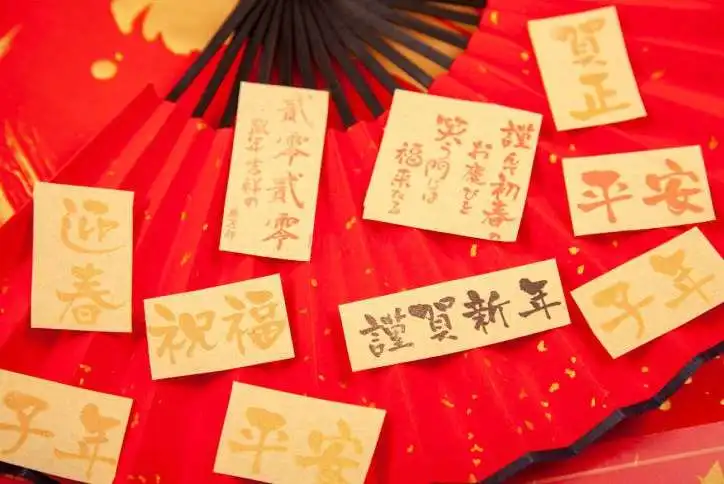 賀正
貳零貳零
鼠年吉祥の
謹んで初春の
お慶びと
笑う門には
福来たる
平安
迎春
祝福
謹賀新年
子年
子年
平安